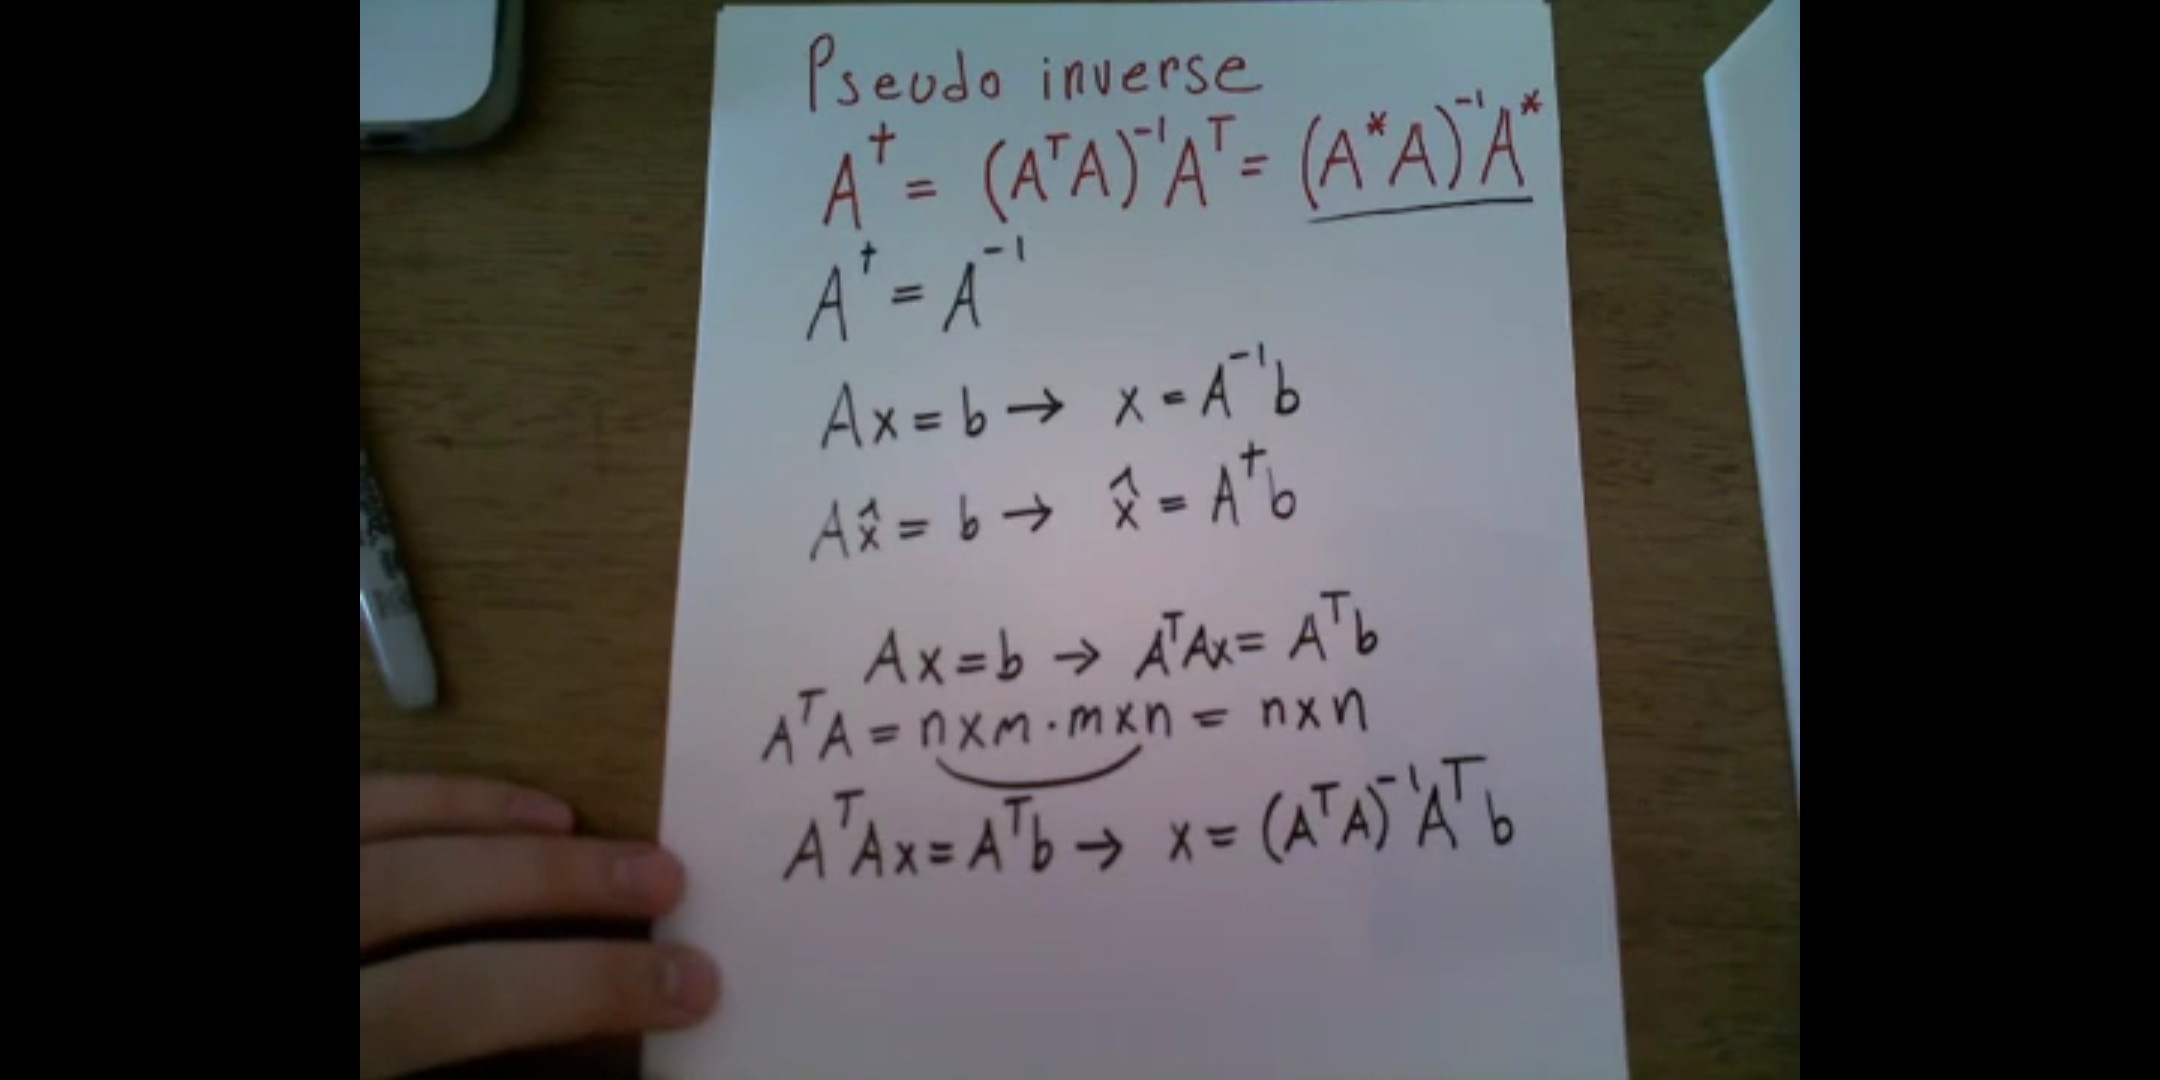 Pseudo inverse
A† = (AᵀA)⁻¹Aᵀ = (A*A)⁻¹A*
A† = A⁻¹
Ax = b → x = A⁻¹b
Ax̂ = b → x̂ = A†b
Ax = b → AᵀAx = Aᵀb
AᵀA = n x m · m x n = n x n
AᵀAx = Aᵀb → x = (AᵀA)⁻¹Aᵀb